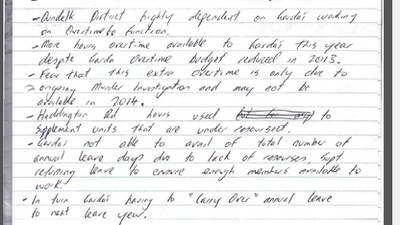 - Dundalk District highly dependent on Garda's working
on Overtime to function.
- More hours overtime available to Garda's this year
despite Garda overtime budget reduced in 2013.
- Fear that this extra overtime is only due to
ongoing Murder Investigation and may not be
available in 2014.
- Haddington Rd hours used to
supplement units that are under resoursed.
- Garda's not able to avail of total number of
annual leave days due to lack of resourses, Supt
returning leave to ensure enough members available to
work!
- In turn Garda's having to "Carry Over" annual leave
to next leave year.